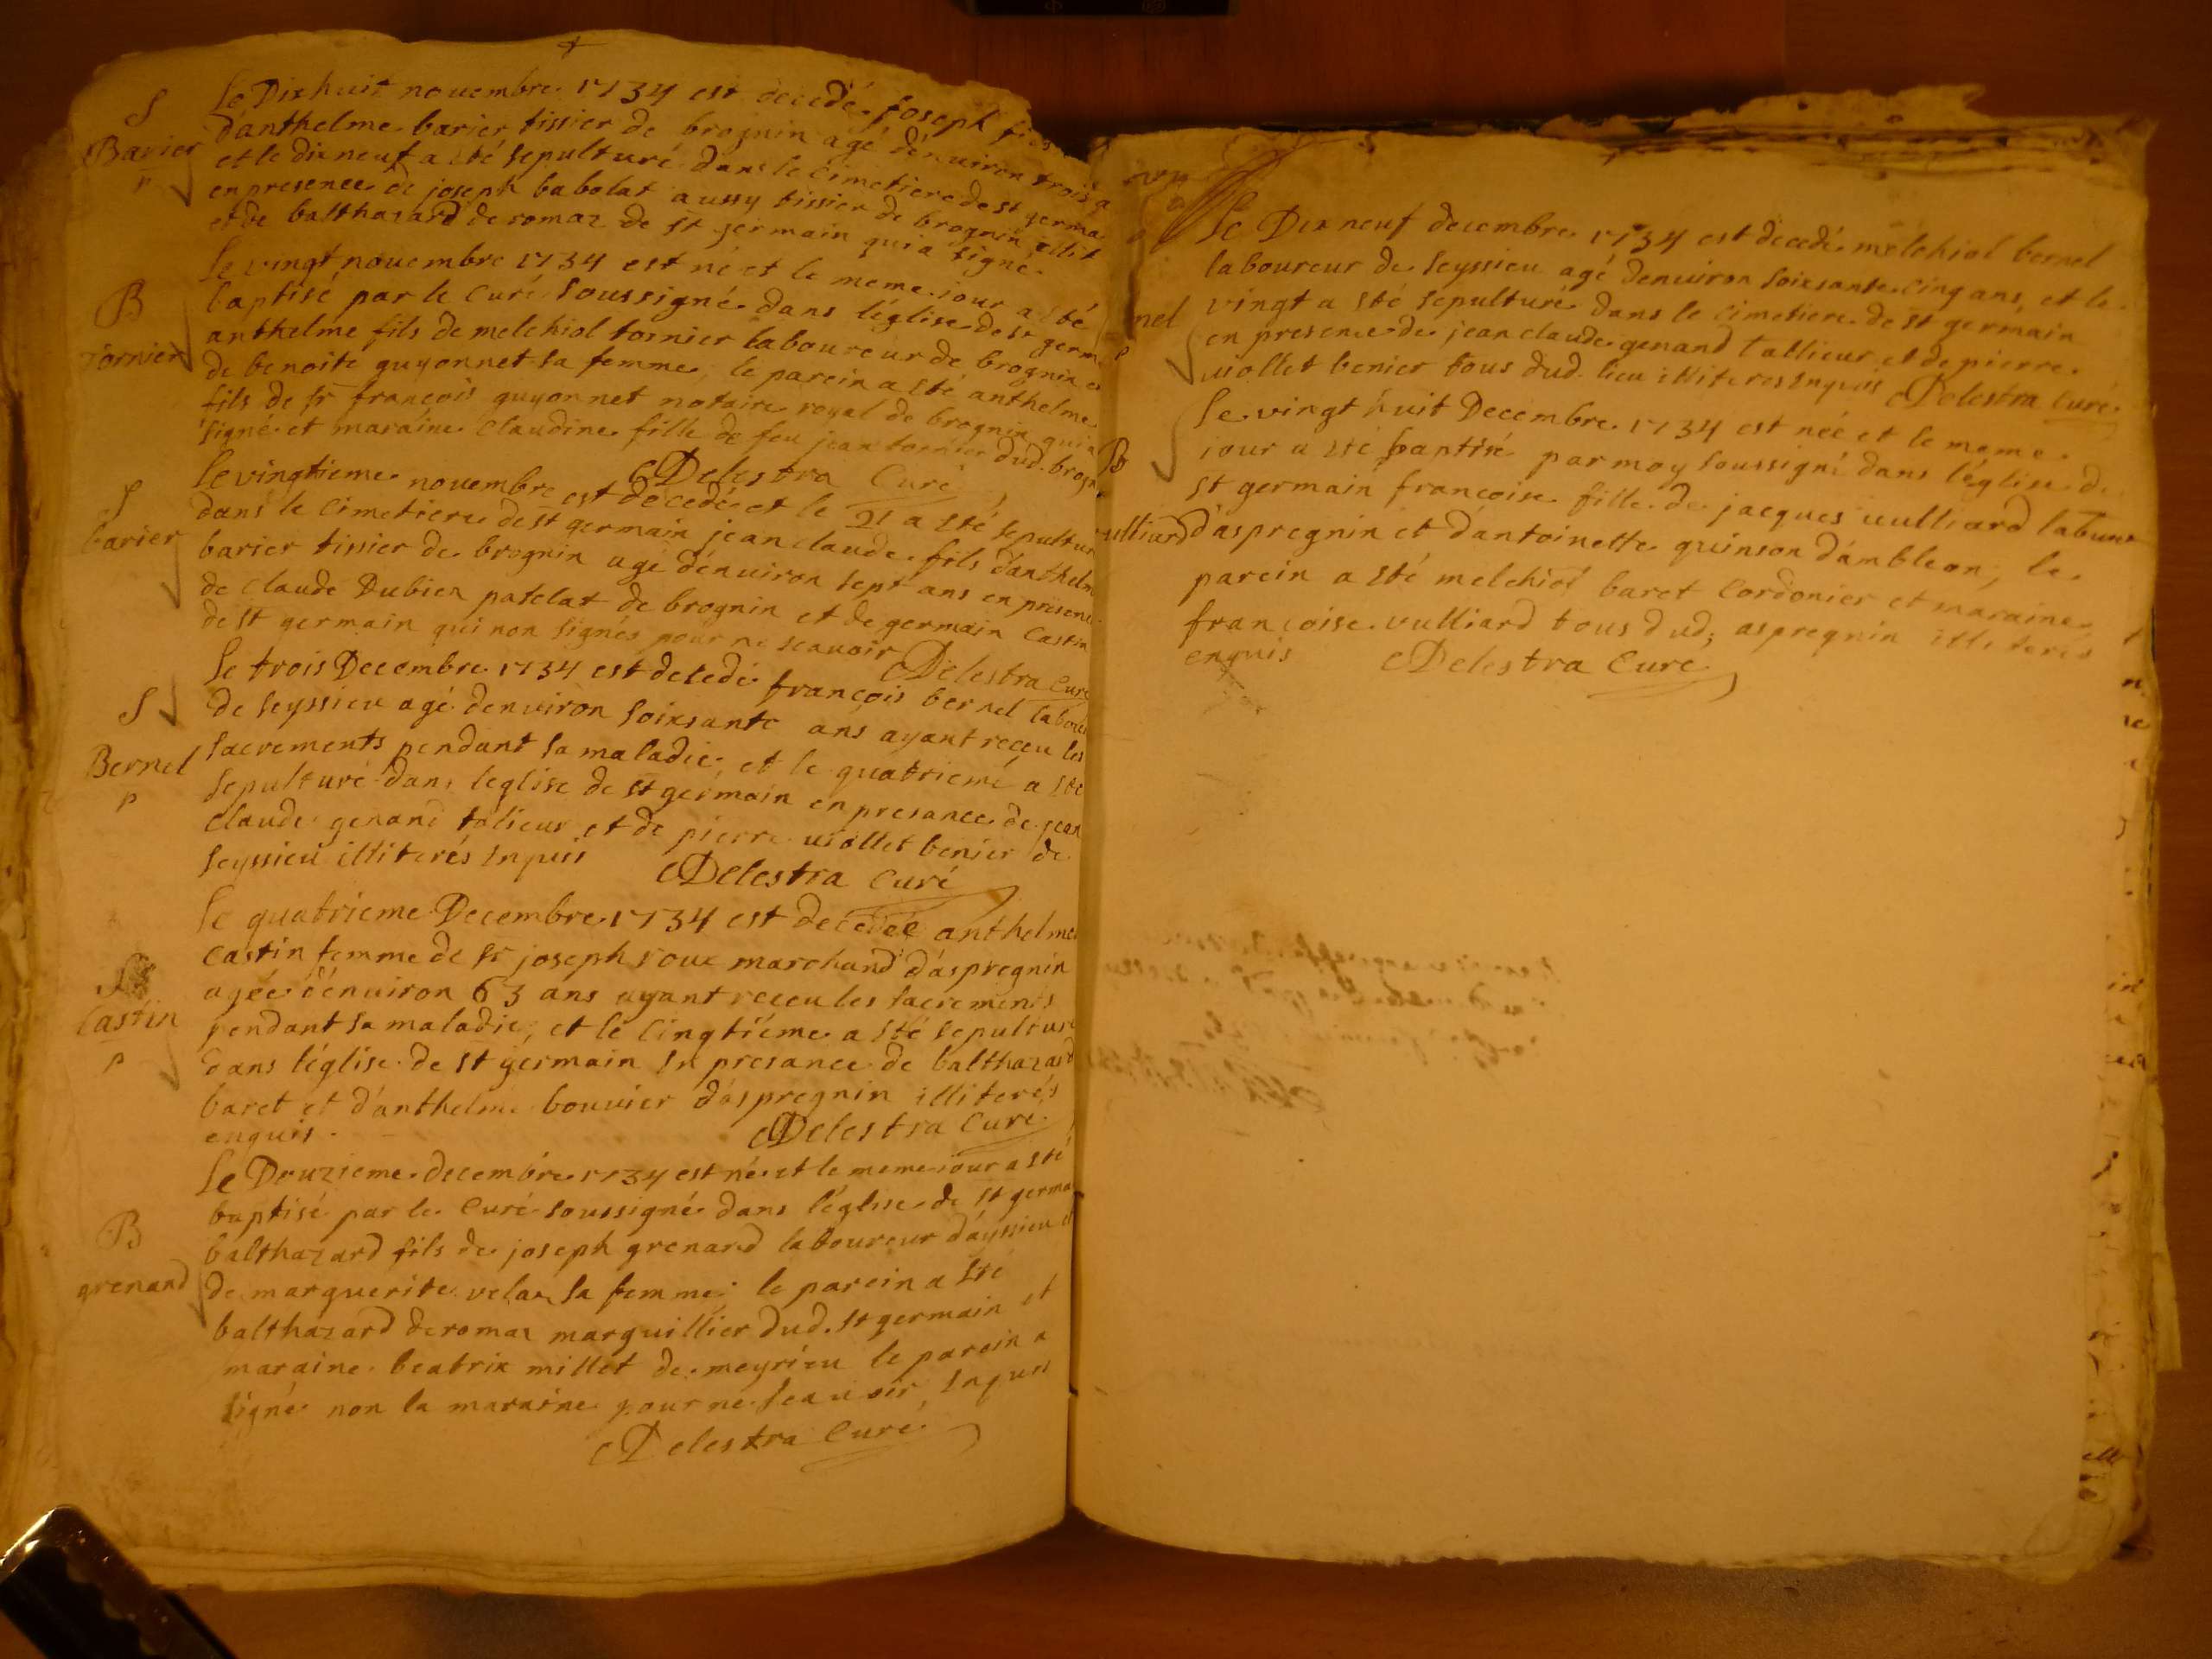 S
Barier
p
Le Dixhuit novembre 1734 est decedé joseph fils
d'anthelme barier tissier de brognin agé d'enuiron trois a
et le dix neuf a été sepulturé dans le cimetiere de st germa
en presence de joseph babolat aussy tissier de brognin illit
et de balthazard de romaz de st germain qui a signé
B
Tornier
Le vingt nouembre 1734 est né et le meme iour a sté
baptisé par le Curé soussigné dans l'église de st germ
anthelme fils de melchiol tornier laboureur de brognin e
de benoite guyonnet sa femme, le parein a sté anthelme
fils de sr françois guyonnet notaire royal de brognin qui a
signé et maraine Claudine fille de feu jean tornier dud. brogn
Delestra Curé
S
barier
Le vingtieme nouembre est decedé et le 21 a sté sepultur
dans le cimetiere de st germain jean claude fils d'anthelm
barier tissier de brognin agé d'enuiron sept ans en presenc
de claude Dubien patelat de brognin et de germain Castin
de st germain qui non signés pour ne scauoir
Delestra Curé
S
Bernel
p
Le trois Decembre 1734 est decedé françois bernel labour
de seyssieu agé denuiron soixsante ans ayant receu les
sacrements pendant sa maladie, et le quatriemé a sté
sepulturé dans leglise de st germain en presance de jean
claude genand talieur et de pierre uiollet benier de
seyssieu illiterés enquis
Delestra Curé
S
Castin
p
Le quatrieme Decembre 1734 est decedée anthelme
Castin femme de sr joseph roux marchand d'aspregnin
agée d'enuiron 63 ans ayant receu les sacrements
pendant sa maladie, et le cinqtiéme a sté sepulturé
dans l'église de st germain en presance de balthazard
baret et d'anthelme bouuier d'aspregnin illiterés
enquis.
Delestra Curé
B
grenand
Le Douzieme decembre 1734 est né et le meme iour a sté
baptisé par le Curé soussigné dans l'église de st germa
balthazard fils de joseph grenand laboureur d'ayssieu et
de marguerite velar sa femme le parein a sté
balthazard deromaz marguillier dud. st germain et
maraine beatrix millet de meyrieu le parein a
signé non la maraine pour ne scauoir enquis
Delestra Curé
nel
p
Le Dix neuf decembre 1734 est decedé melchiol bernel
laboureur de seyssieu agé denuiron soixsante cinq ans, et le
vingt a sté sepulturé dans le cimetiere de st germain
en presence de jean claude genand tallieur et de pierre
uiollet benier tous dud. lieu illiteres enquis
Delestra Curé
B
ulliard
Le vingt huit Decembre 1734 est née et le meme
iour a sté baptisé par moy soussigné dans l'église de
st germain françoise fille de jacques uulliard labour
d'aspregnin et d'antoinette quinson d'ambleon, le
parein a sté melchiol baret Cordonier et maraine
françoise vulliard tous dud, aspregnin illiterés
enquis
Delestra Curé